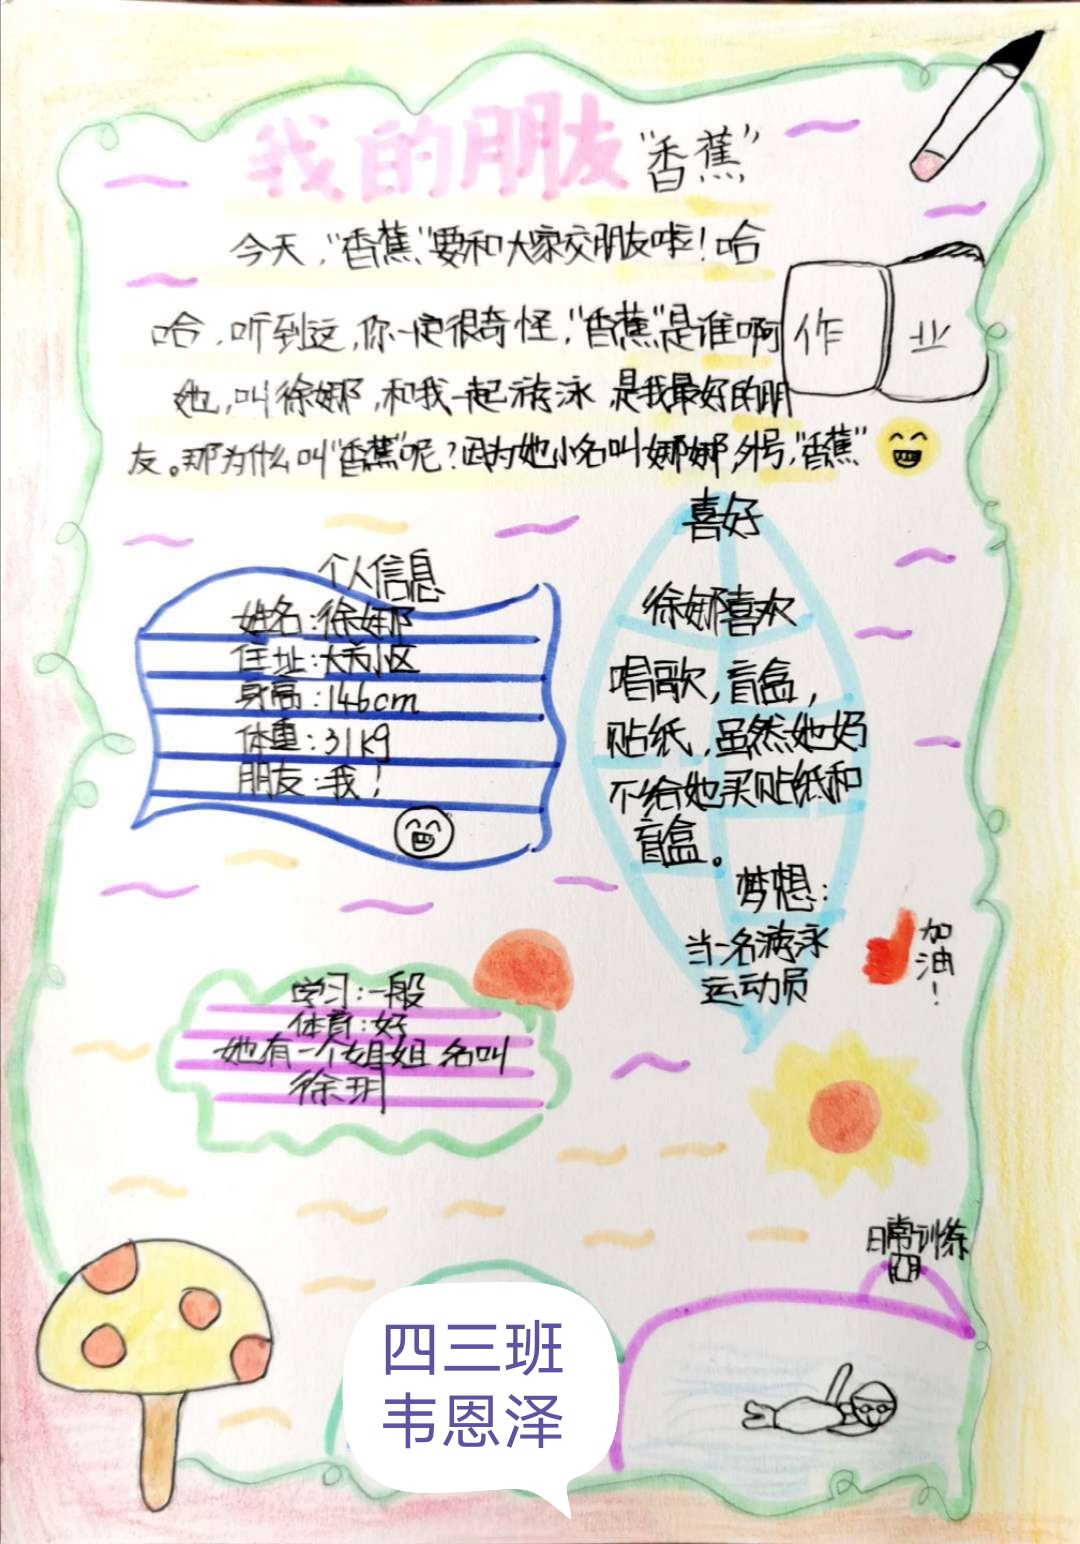 我的朋友"香蕉"
今天,"香蕉"要和大家交朋友啦!哈
哈,听到这,你一定很奇怪,"香蕉"是谁啊
她,叫徐娜,和我一起游泳,是我最好的朋
友。那为什么叫"香蕉"呢?因为她小名叫娜娜,外号,"香蕉"
作业
个人信息
姓名:徐娜
住址:大禹小区
身高:146cm
体重:31kg
朋友:我!
喜好
徐娜喜欢
唱歌,盲盒,
贴纸,虽然她妈
不给她买贴纸和
盲盒。
梦想:
当一名游泳
运动员
加油!
学习:一般
体育:好
她有一个姐姐 名叫
徐玥
日常训练
四三班
韦恩泽